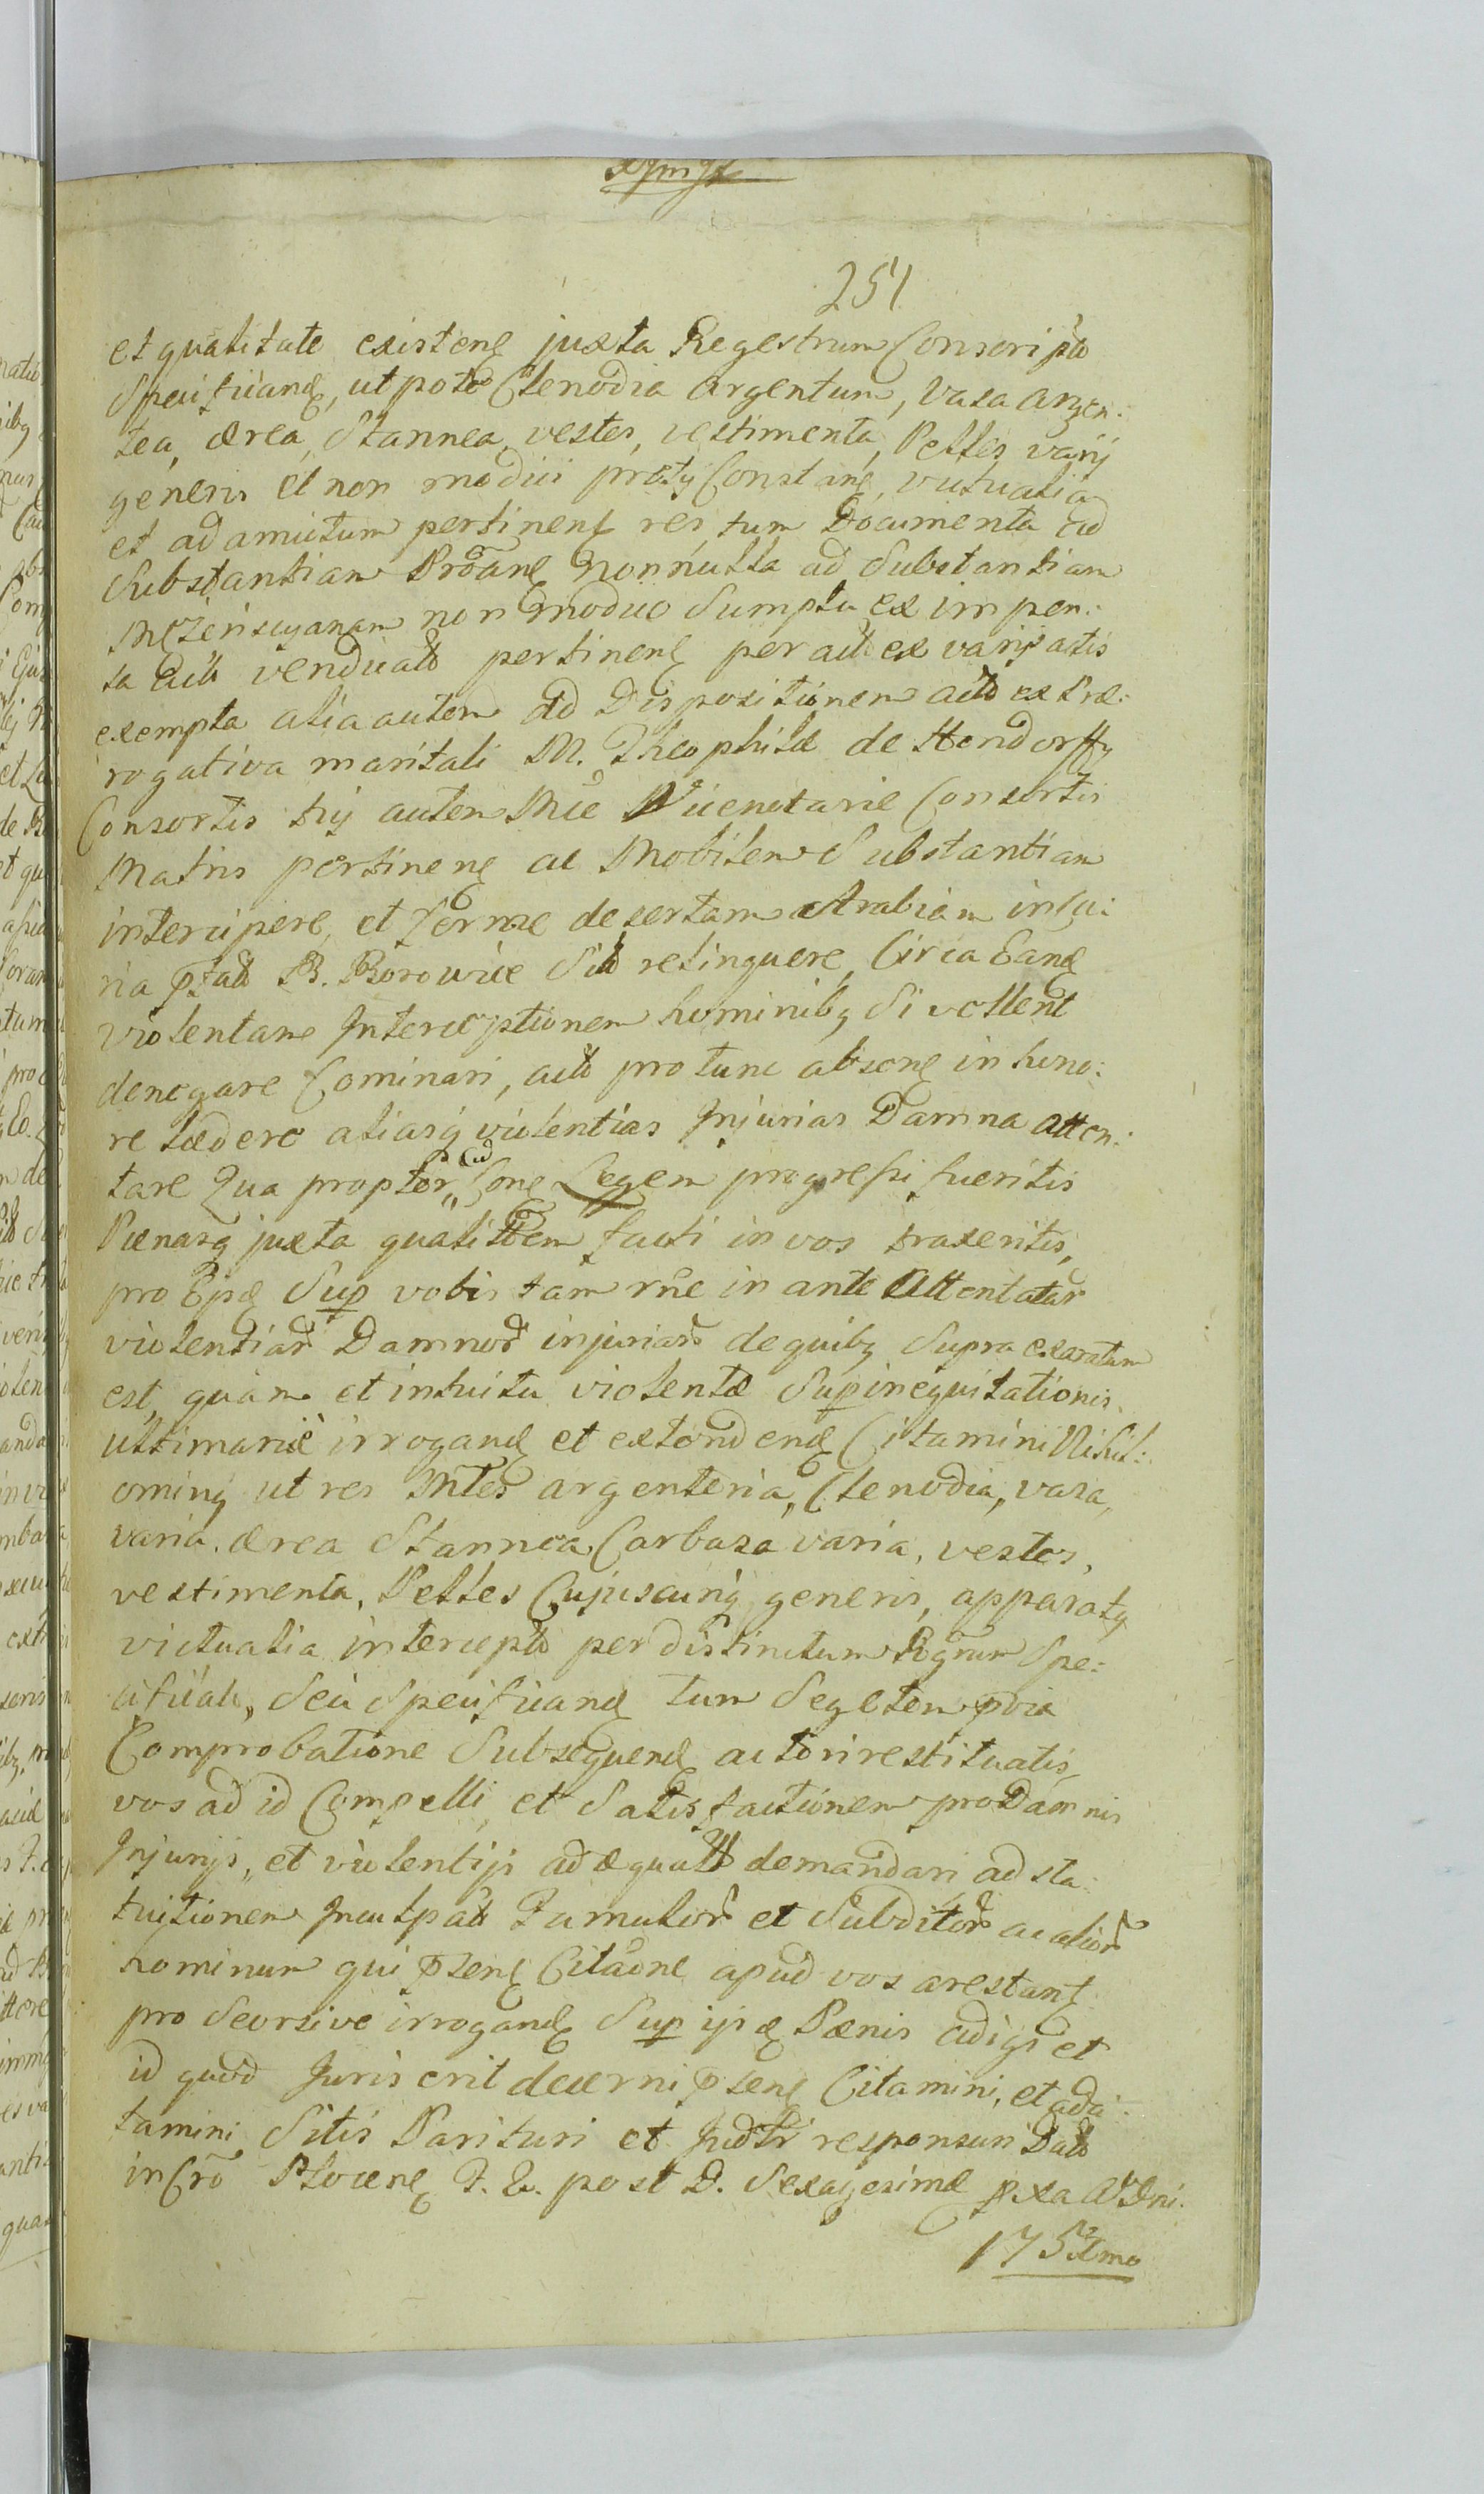 251
et qualitate existenς juxta Regestrum Conscripto
Specificandς, utpote Clenodia argentum, vasa argen:
tea, ærea, Stannea, vestes, vestimenta, Pelles varÿ
generis et non modici pretÿ Constanς, victualia
et ad amictum pertinenς res, tum Documenta ad
Substantiam Proanς nonnulla ad Substantiam
non modico Sumptu ex impen:
sa acto vendicato pertinenς per acto ex varÿs actis
exempta alia autem ad Dispositionem acto ex Præ:
rogativa maritali M. Theophilæ de Hendorffÿ
Consortis trÿ autem Mce Vicenotariæ Consortis
Matris pertinenς ac Mobilem Substantiam
intercipere, et ferme desertam Arabiam in Cu:
ria pfato B. Borowice Sito relinquere, Circa Eanς
violentam Interceptionem hominibꝫ Si vellent
denegare Cominari, acto pro tunc absenς in hono:
re lædere aliasqꝫ violentias Injurias Damna atten:
tare Qua propter ad Conς Legem progressi fueritis
Pænasqꝫ juxta qualittem facti in vos traxeritis,
pro Epς Sup vobis tam rne in ante Attentatar
violentiar Damnor injuriar de quibꝫ Supra exaratum
est, quam et intuitu violentæ Supinequitationis
ultimariæ irroganς et extendenς Citamini Nihil:
ominꝫ ut res Mtes argenteria, Clenodia, vasa,
varia. ærea Stannea Carbasa varia, vestes,
vestimenta, Pelles Cujuscunqꝫ generis, apparatꝫ
victualia intercepto per distinctum Rgrum Spe:
cificato, Seu Specificanς tum Segetem pvia
Comprobatione Subsequenς actori restituatis,
vos ad id Compelli, et Satisfactionem pro Damnis
Injurÿs, et violentÿs adæquatt demandari ad sta:
tuitionem Inculpato Famulor et Subditor ac alior
hominum qui psenς Citaone apud vos arestant
pro Seorsive irroganς Sup ipς Pænis adigi et
id quod Juris erit decerni psenς Citamini, et ada
tamini Sitis Parituri et Judtr responsuri Dato
in Cro Plocenς F. 2. post D. Sexagesimæ pxa A Dni.
1752do